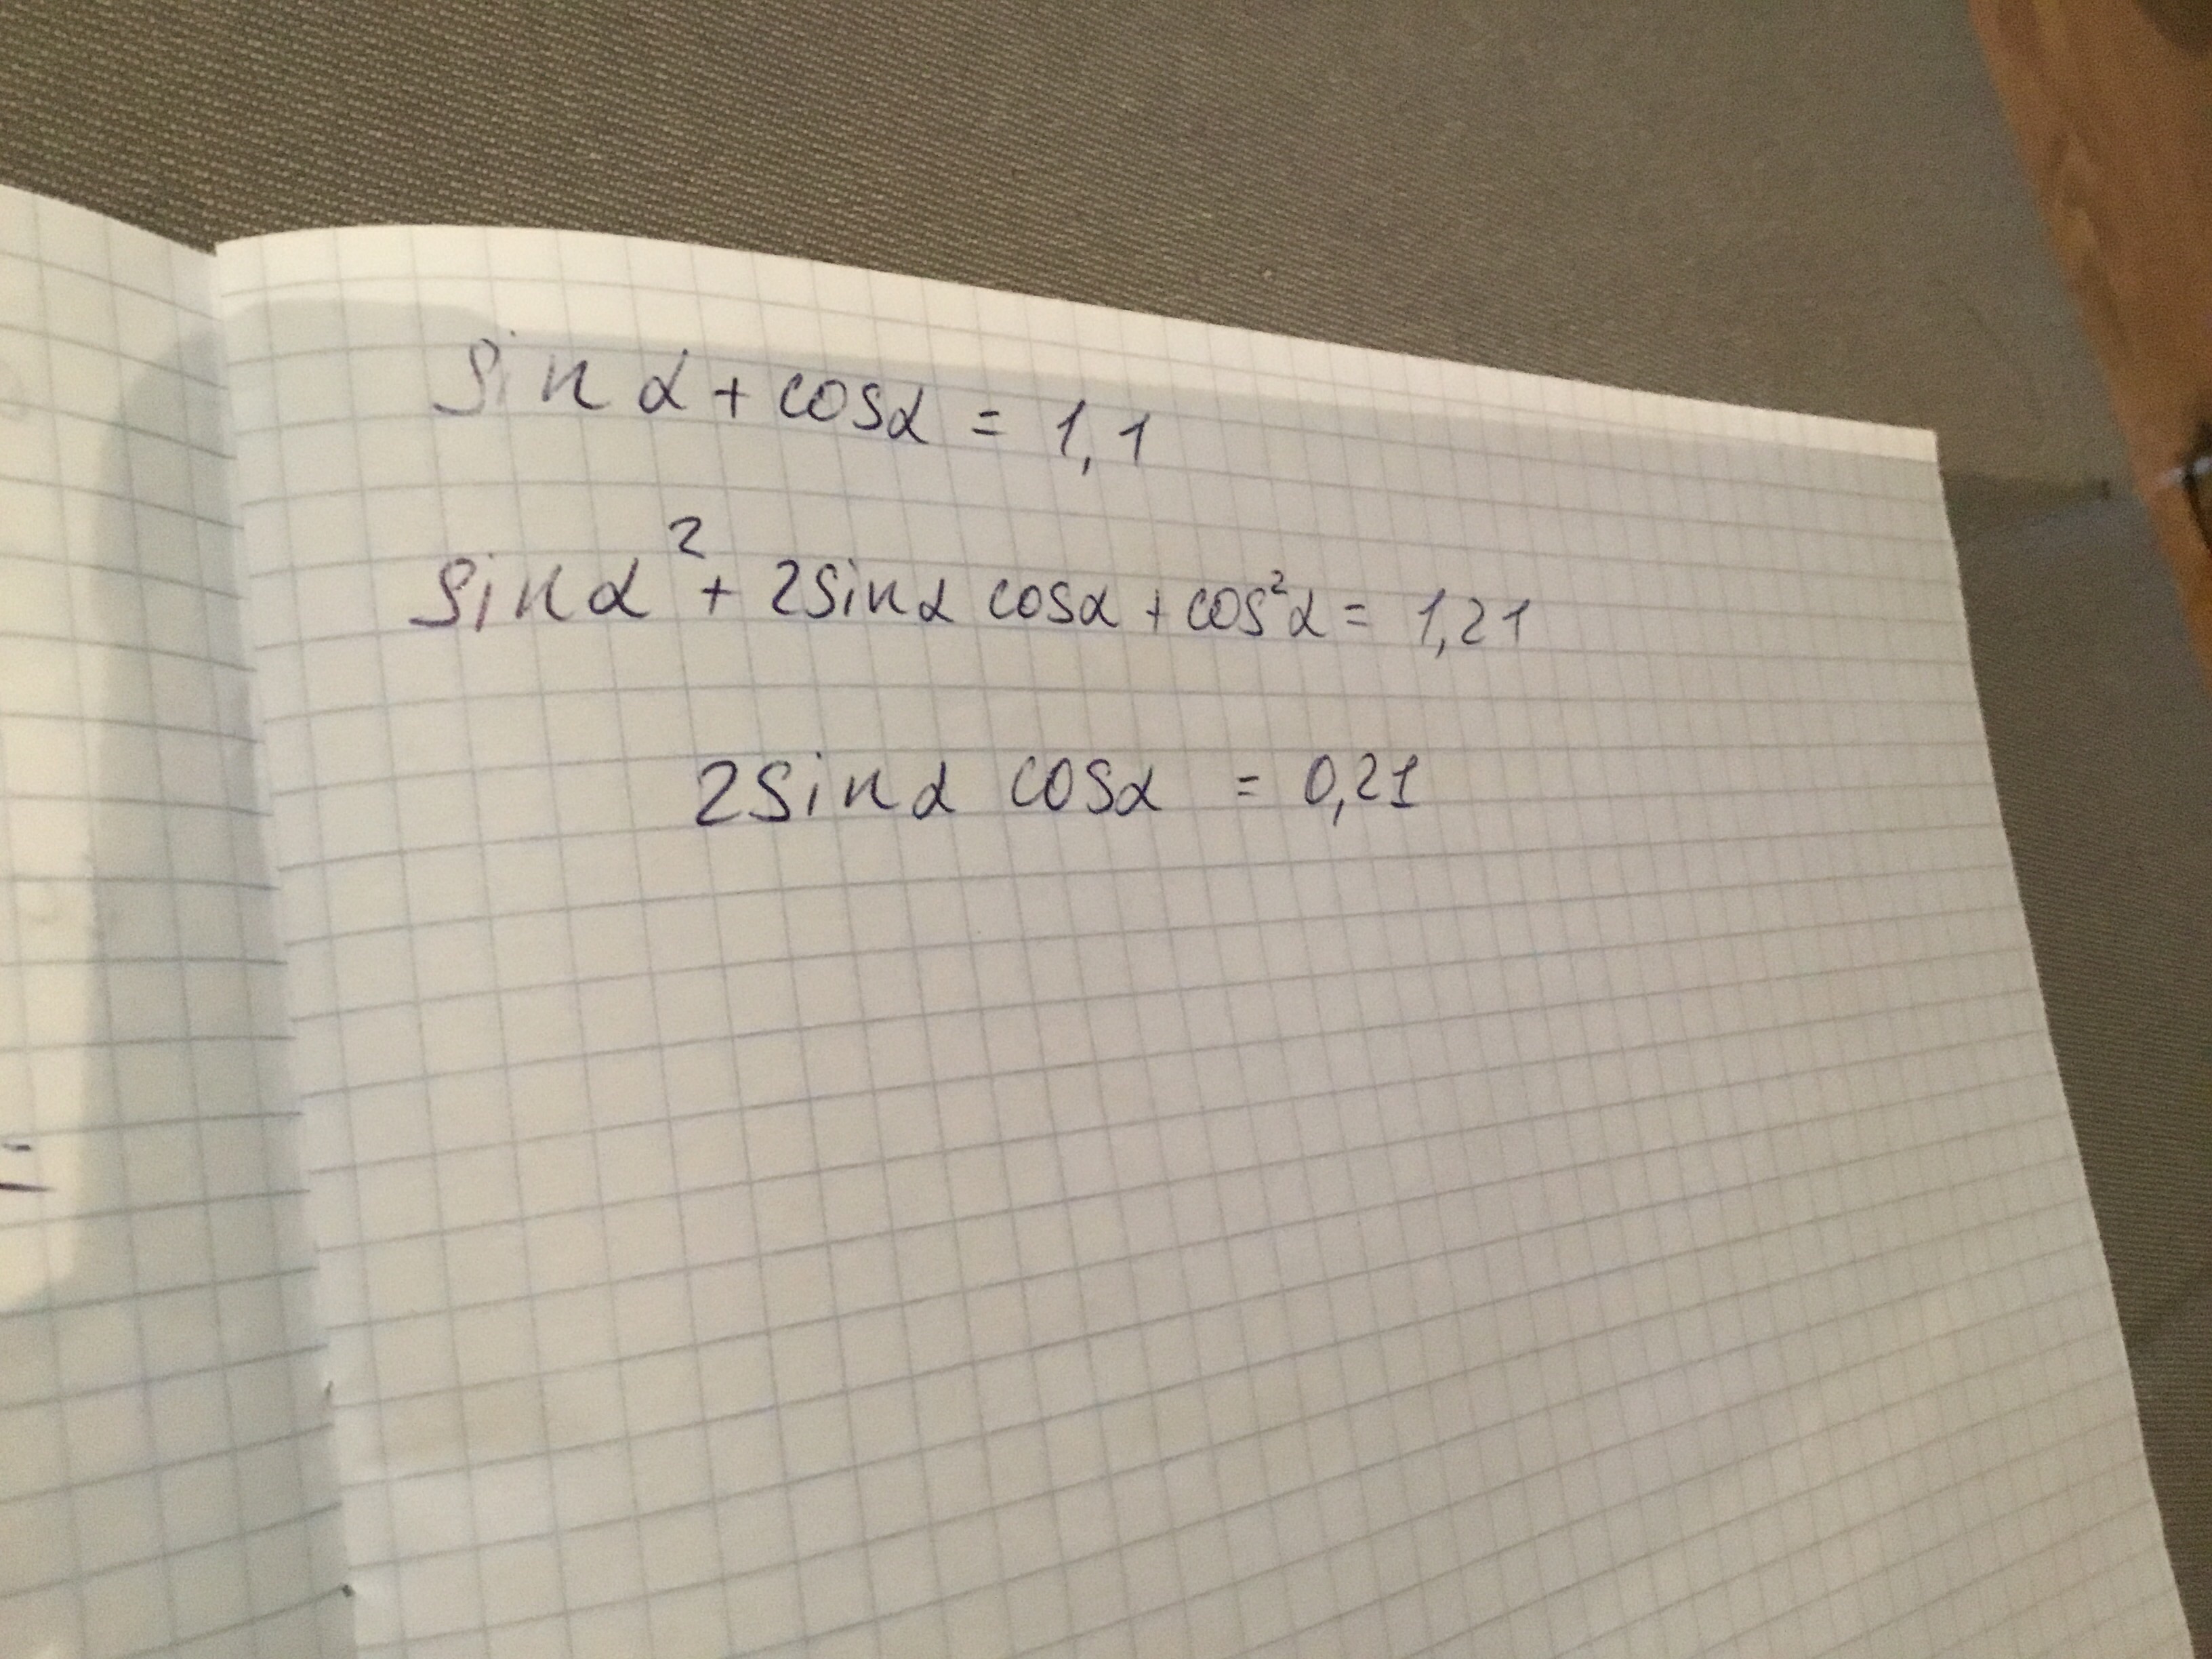 sin α + cos α = 1,1
sin α² + 2 sin α cos α + cos² α = 1,21
2 sin α cos α = 0,21